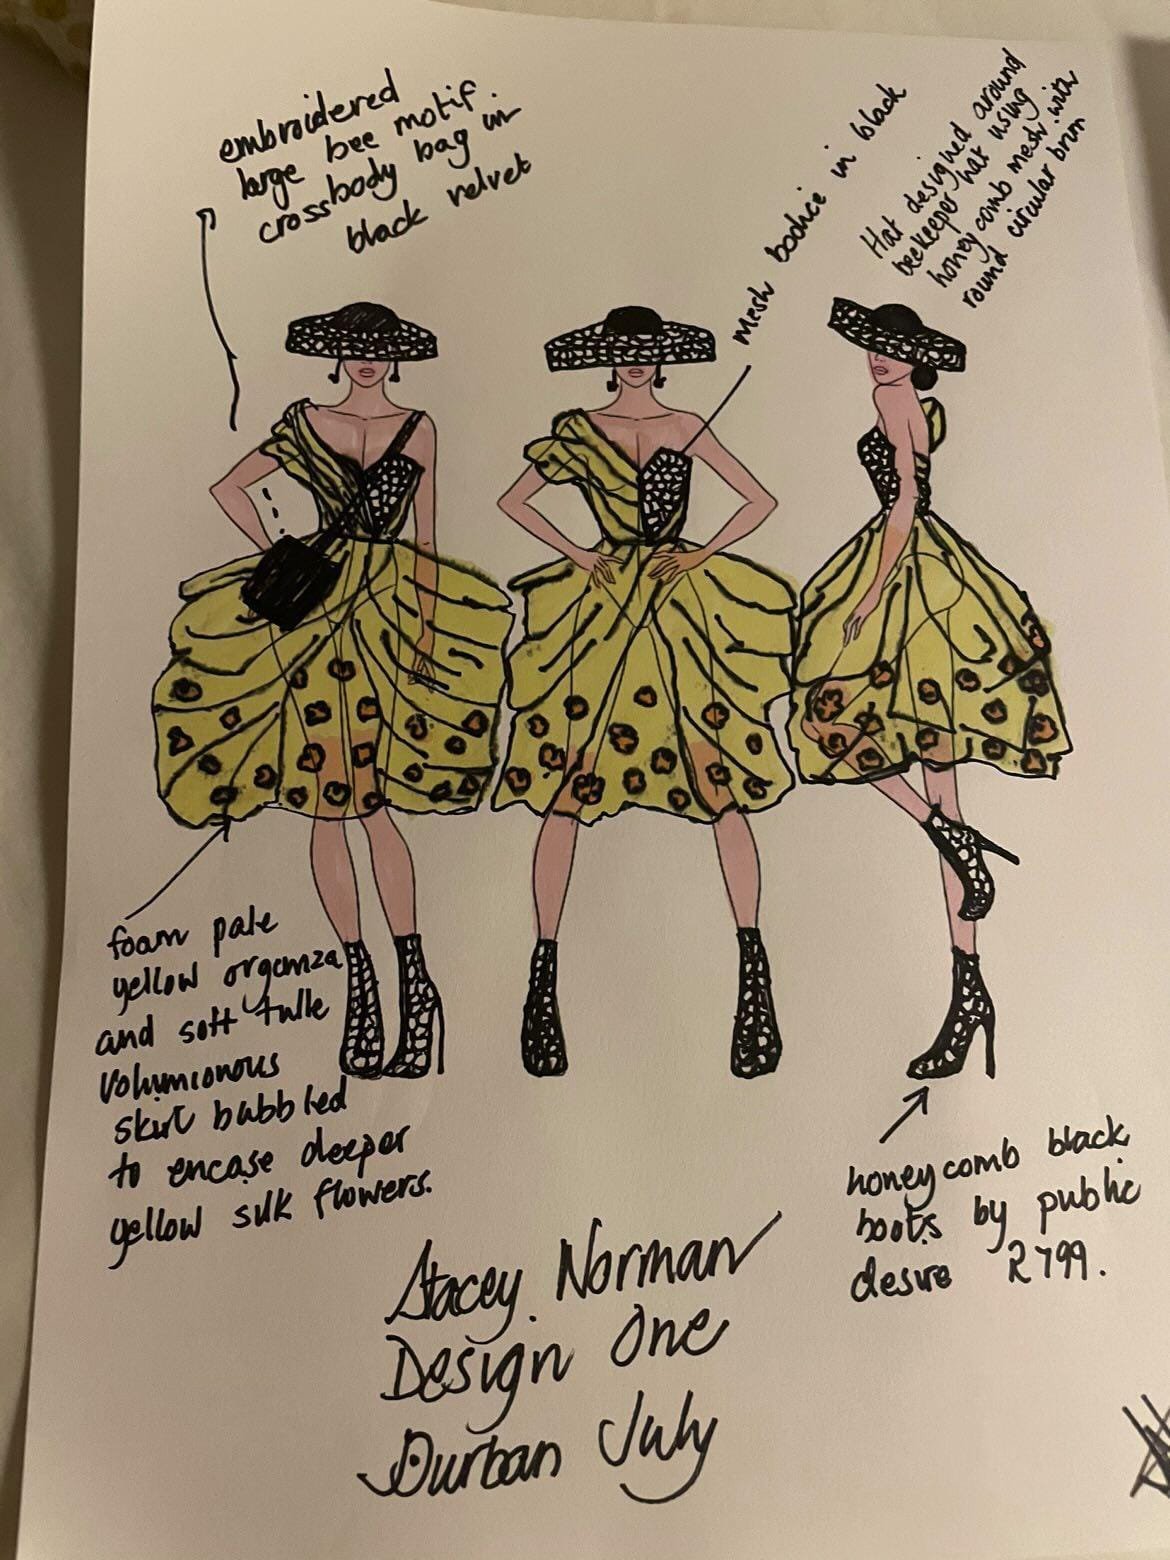 embroidered
large bee motif.
crossbody bag in
black velvet
mesh bodice in black
Hat designed around
beekeeper hat using
honey comb mesh with
round circular brim
foam pale
yellow organza
and soft tulle
volumionous
skirt bubbled
to encase deeper
yellow silk flowers.
honeycomb black
boots by public
desire R799.
Stacey Norman
Design One
Durban July